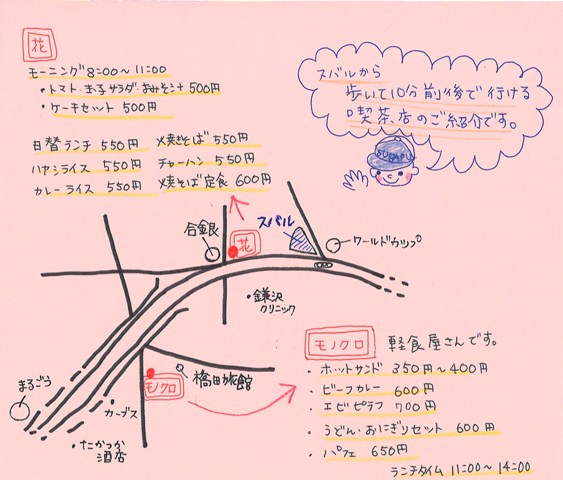 花
モーニング 8:00～11:00
・トマト・玉子サラダ・おみそ汁 500円
・ケーキセット 500円
日替ランチ 550円 焼きそば 550円
ハヤシライス 550円 チャーハン 550円
カレーライス 550円 焼そば定食 600円
スバルから
歩いて10分前後で行ける
喫茶店のご紹介です。
SUBARU
合銀
花
スバル
ワールドカップ
・鎌沢
クリニック
モノクロ 軽食屋さんです。
・ホットサンド 350円～400円
・ビーフカレー 600円
・エビピラフ 700円
・うどん・おにぎりセット 600円
・パフェ 650円
ランチタイム 11:00～14:00
モノクロ
橋田旅館
まるごう
・カーブス
・たかつか
酒店